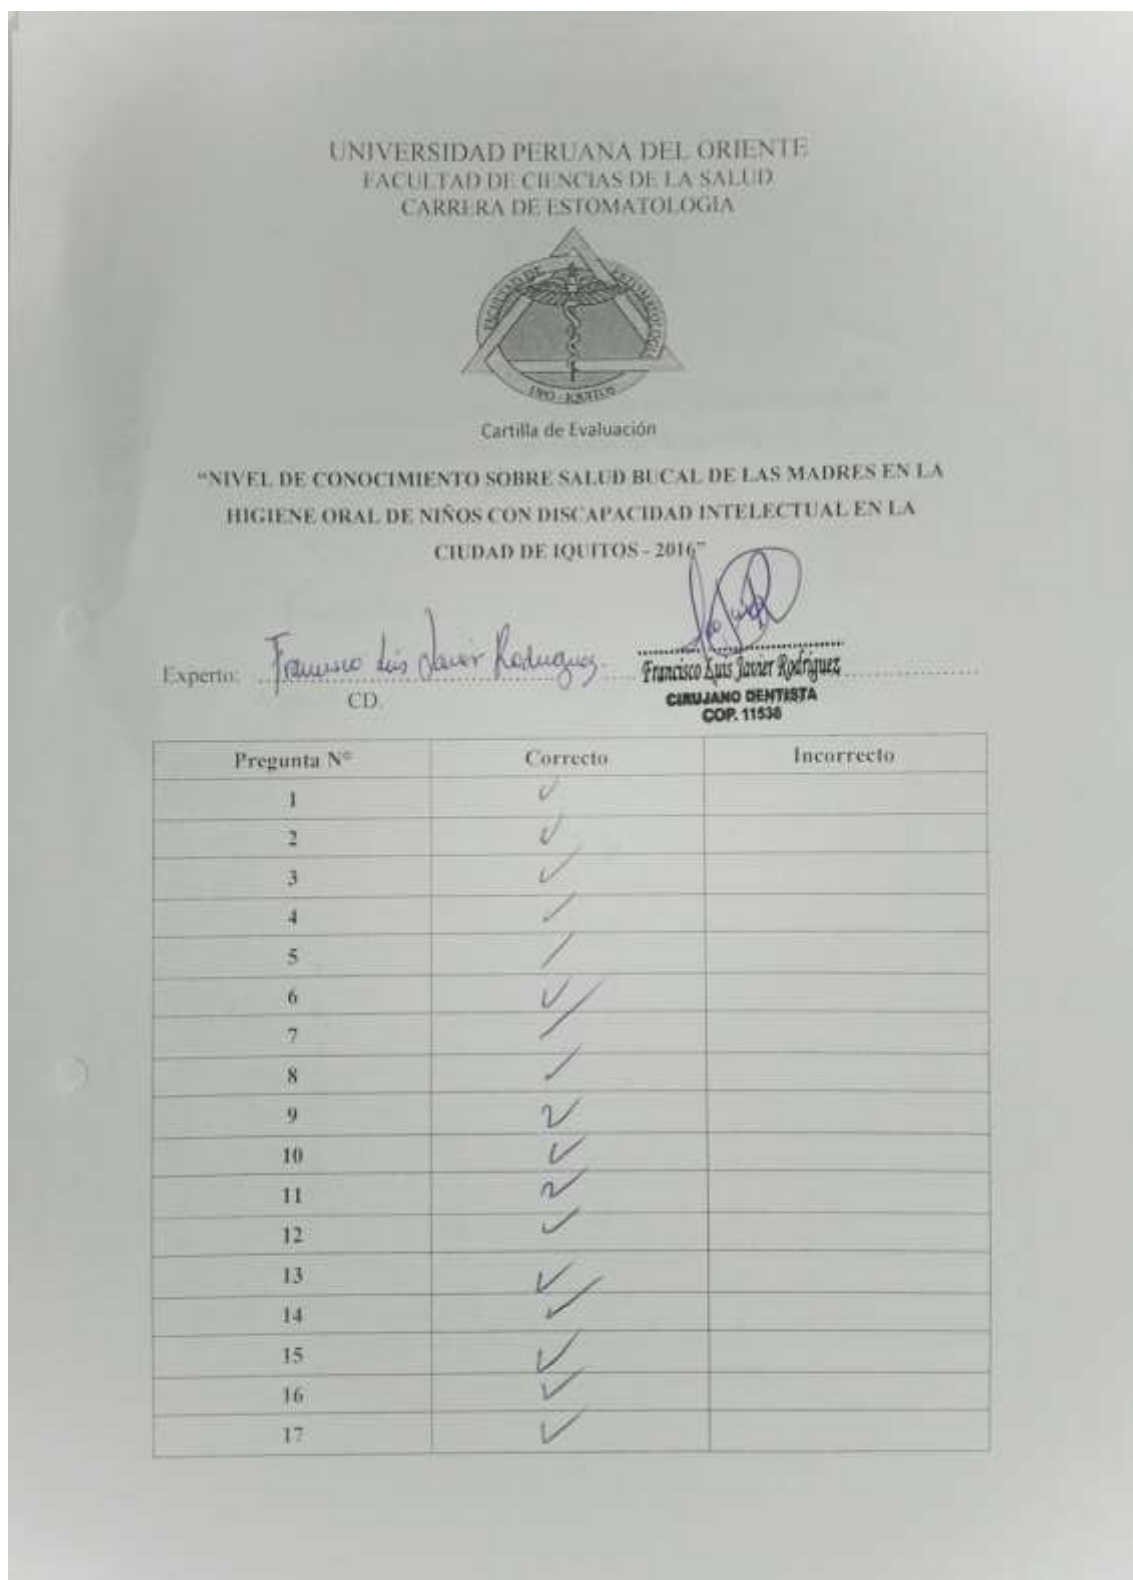 UNIVERSIDAD PERUANA DEL ORIENTE
FACULTAD DE CIENCIAS DE LA SALUD
CARRERA DE ESTOMATOLOGIA
FACULTAD DE ESTOMATOLOGIA
UPO - IQUITOS
Cartilla de Evaluación
“NIVEL DE CONOCIMIENTO SOBRE SALUD BUCAL DE LAS MADRES EN LA
HIGIENE ORAL DE NIÑOS CON DISCAPACIDAD INTELECTUAL EN LA
CIUDAD DE IQUITOS - 2016”
Experto: Francisco Luis Javier Rodriguez.
Francisco Luis Javier Rodríguez
CD.
CIRUJANO DENTISTA
COP. 11538
Pregunta N° Correcto Incorrecto
1 ✓
2 ✓
3 ✓
4 ✓
5 ✓
6 ✓
7 ✓
8 ✓
9 ✓
10 ✓
11 ✓
12 ✓
13 ✓
14 ✓
15 ✓
16 ✓
17 ✓